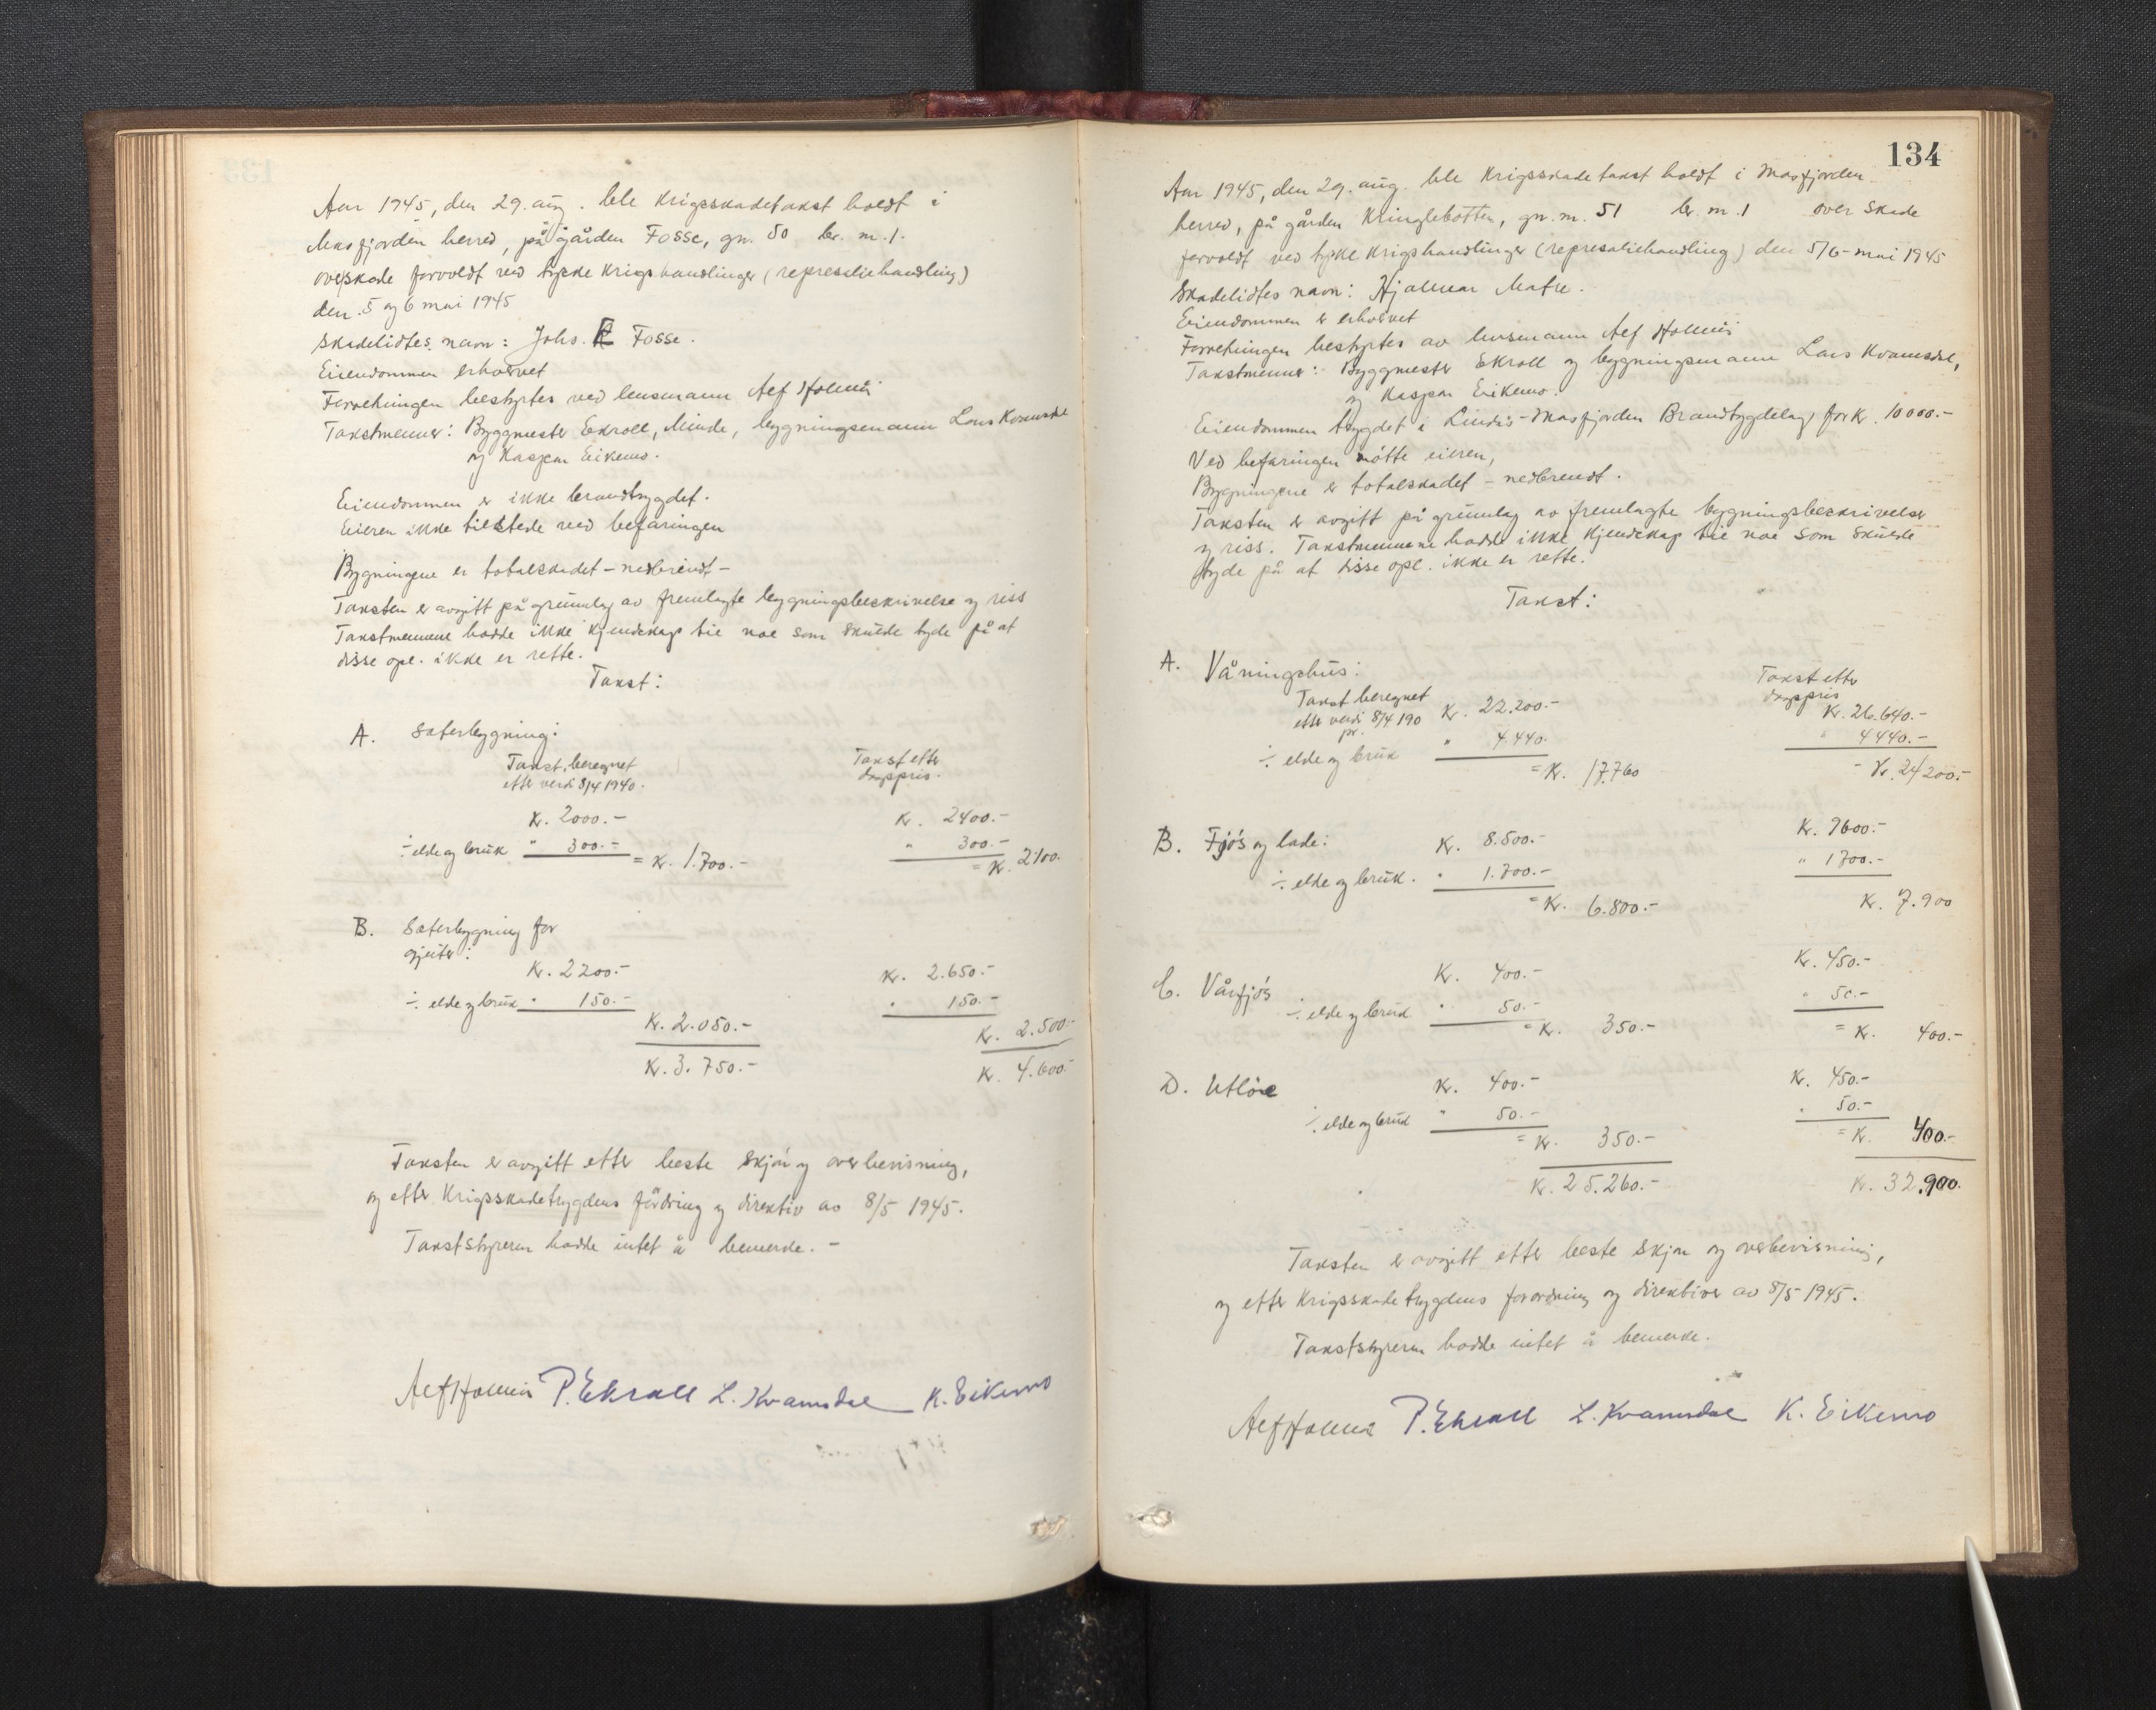 Aar 1945, den 29. aug. ble Krigsskadetakst holdt i
Masfjorden herred, på gården Fosse, gn. 50 br. nr. 1.
over skade forvoldt ved tyske Krigshandlinger (represaliehandling)
den 5 og 6 mai 1945
Skadelidtes navn: Johs. E Fosse.
Eiendommen erhvervet
Forretningen bestyrtes ved lensmann Alf Holmås
Takstmenner: Byggmester Ekroll, Minde, bygningsmann Lars Kvamsdal
og Kaspar Eikemo.
Eiendommen er ikke brandtrygdet.
Eieren ikke tilstede ved befaringen
Bygningene er totalskadet - nedbrendt -
Taksten er avgitt på grunnlag av fremlagte bygningsbeskrivelse og riss
Takstmennene hadde ikke kjendskap til noe som skulde tyde på at
disse opl. ikke er rette.
Takst:
A. Sæterbygning:
Takst, beregnet
etter verdi 8/4 1940.
Takst etter
dagspris.
Kr. 2000.- Kr. 2400.-
÷ elde og bruk " 300.- = Kr. 1.700.- " 300.- = Kr. 2100.
B. Sæterbygning for
gjeiter:
Kr. 2200.- Kr. 2.650.-
÷ elde og bruk " 150.- " 150.-
Kr. 2.050.- Kr. 2.500.-
Kr. 3.750.- Kr. 4.600.-
Taksten er avgitt etter beste skjøn og overbevisning,
og etter Krigsskadetrygdens fordring og direktiv av 8/5 1945.
Takststyreren hadde intet å bemerke. -
Alf Holmås P. Ekroll L. Kvamsdal K. Eikemo
134
Aar 1945, den 29. aug. ble Krigsskadetakst holdt i Masfjorden
herred, på gården Kringlebotten, gn. nr. 51 br. nr. 1 over skade
forvoldt ved tyske Krigshandlinger (represaliehandling) den 5/6- mai 1945
Skadelidtes navn: Hjalmar Matre.
Eiendommen er erhvervet
Forretningen bestyrtes av lensmann Alf Holmås
Takstmenner: Byggmester Ekroll og bygningsmann Lars Kvamsdal,
og Kaspar Eikemo.
Eiendommen trygdet i Lindås-Masfjorden Brandtrygdelag for kr. 10000.-
Ved befaringen møtte eieren,
Bygningene er totalskadet - nedbrendt.
Taksten er avgitt på grunnlag av fremlagte bygningsbeskrivelse
og riss. Takstmennene hadde ikke kjendskap til noe som skulde
tyde på at disse opl. ikke er rette.
Takst:
A. Våningshus:
Takst beregnet
etter verdi 8/4 190
pr.
Takst etter
dagspris
Kr. 22.200.- Kr. 26.640.-
÷ elde og bruk " 4.440. " 4440.-
= Kr. 17.760 - Kr. 24200.-
B. Fjøs og lade: Kr. 8.500.- Kr. 9600.-
÷ elde og bruk. " 1.700.- " 1700.-
= Kr. 6.800.- Kr. 7.900
C. Vårfjøs Kr. 400.- Kr. 450.-
÷ elde og bruk " 50.- " 50.-
= Kr. 350.- = Kr. 400.-
D. Utløe Kr. 400.- Kr. 450.-
÷ elde og bruk " 50.- " 50.-
= Kr. 350.- = Kr. 400.-
Kr. 25.260.- Kr. 32.900.
Taksten er avgitt etter beste skjøn og overbevisning,
og etter Krigsskadetrygdens forordning og direktiver av 8/5 1945.
Takststyreren hadde intet å bemerke.
Alf Holmås P. Ekroll L. Kvamsdal K. Eikemo